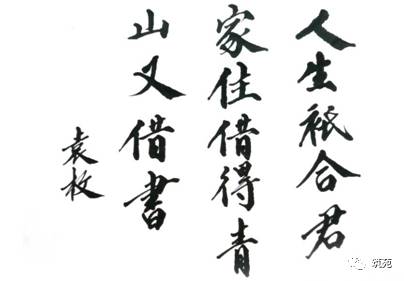 人生祇合君
家住借得青
山又借書
袁枚
筑苑